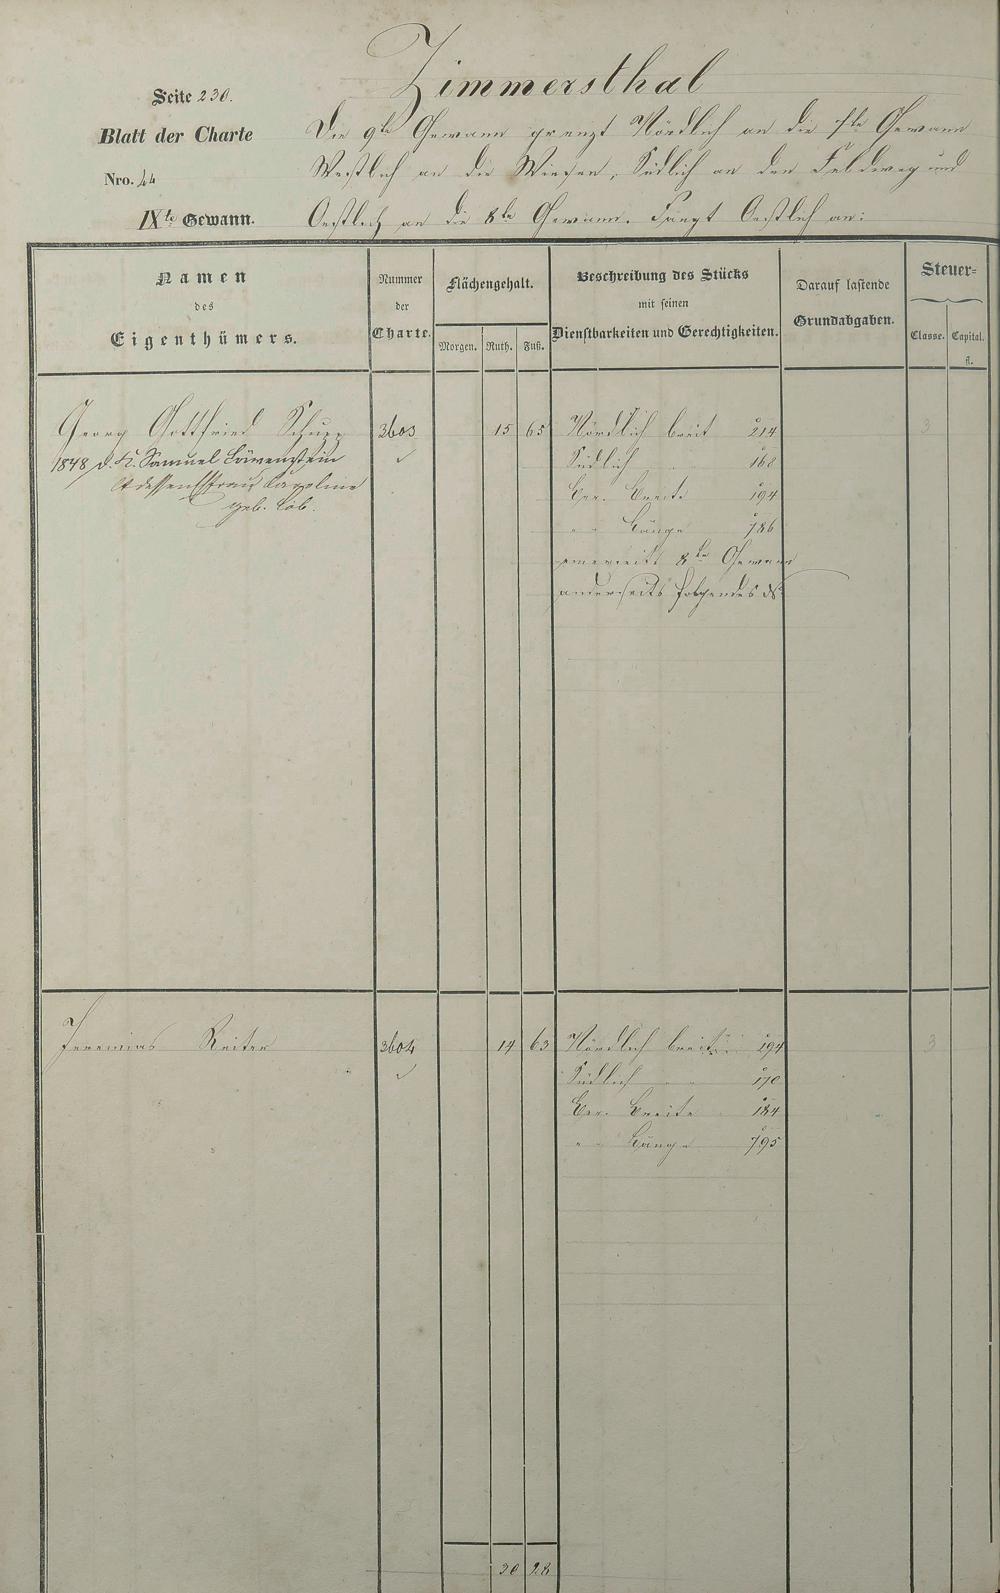 Zimmersthal
Seite 230.
Blatt der Charte
Nro. 44
IXte Gewann.
Die 9te Gewann grenzt Nördlich an die 7te Gewann
Westlich an die Wiesen, Südlich an den Feldweg und
Oestlich an die 8te Gewann. Fängt Oestlich an:
Namen
des
Eigenthümers.
Nummer
der
Charte.
Flächengehalt.
Morgen. Ruth. Fuß.
Beschreibung des Stücks
mit seinen
Dienstbarkeiten und Gerechtigkeiten.
Darauf lastende
Grundabgaben.
Steuer=
Classe. Capital.
fl.
Georg Gottfried Schupp 3603 15 65 Nördlich breit 214 3
1848 d. K. Samuel Löwenstein Südlich 168
dessen Efrau Caroline Ber. Breite 194
geb. Löb. " " Länge 786
einerseits 8te Gewann
anderseits folgendes
Jeremias Reiter 3604 14 63 Nördlich breit 194 3
Südlich " " 170
Ber. Breite 184
" " Länge 795
30 28